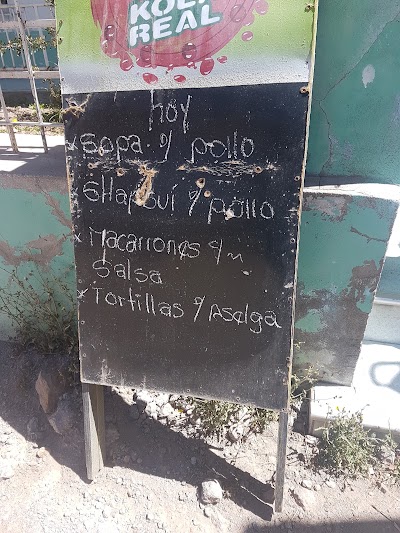 KOLA
REAL
hoy
* Sopa % pollo
* SHapoui % pollo
* Macarrones c/n
Salsa
* Tortillas % Aselga